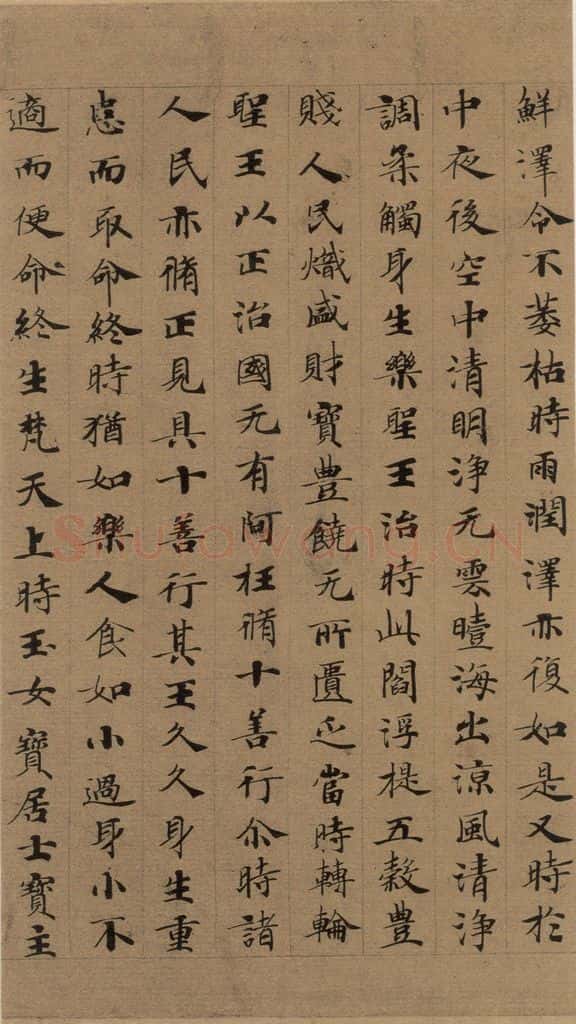 鮮澤令不萎枯時雨潤澤亦復如是又時於
中夜後空中清明浄无雲曀海出涼風清浄
調柔觸身生樂聖王治時此閻浮提五穀豊
賤人民熾盛財寶豊饒无所匱乏當時轉輪
聖王以正治國无有阿枉脩十善行尒時諸
人民亦脩正見具十善行其王久久身生重
患而取命終時猶如樂人食如小過身小不
適而便命終生梵天上時玉女寶居士寶主
Shufawang.CN